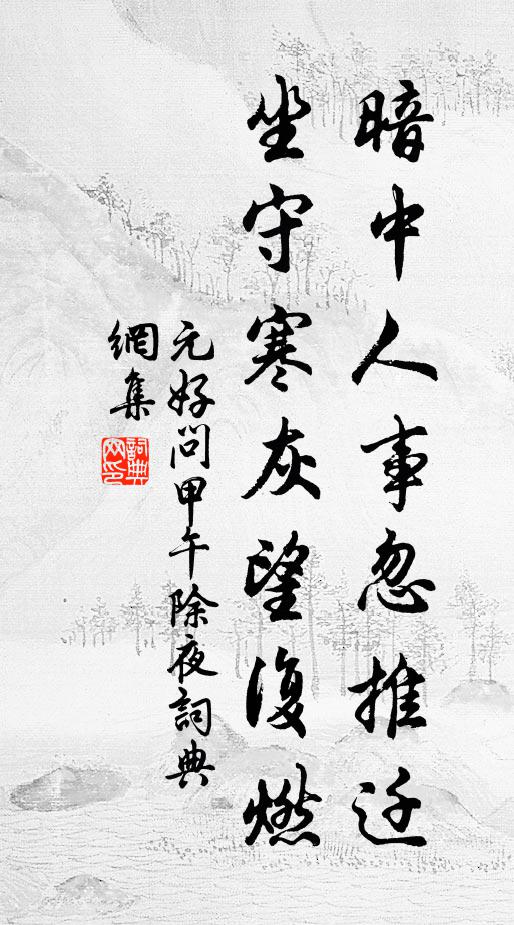 暗中人事忽推迁
坐守寒灰望復燃
元好问甲午除夜詞典
網集
詞典
网印